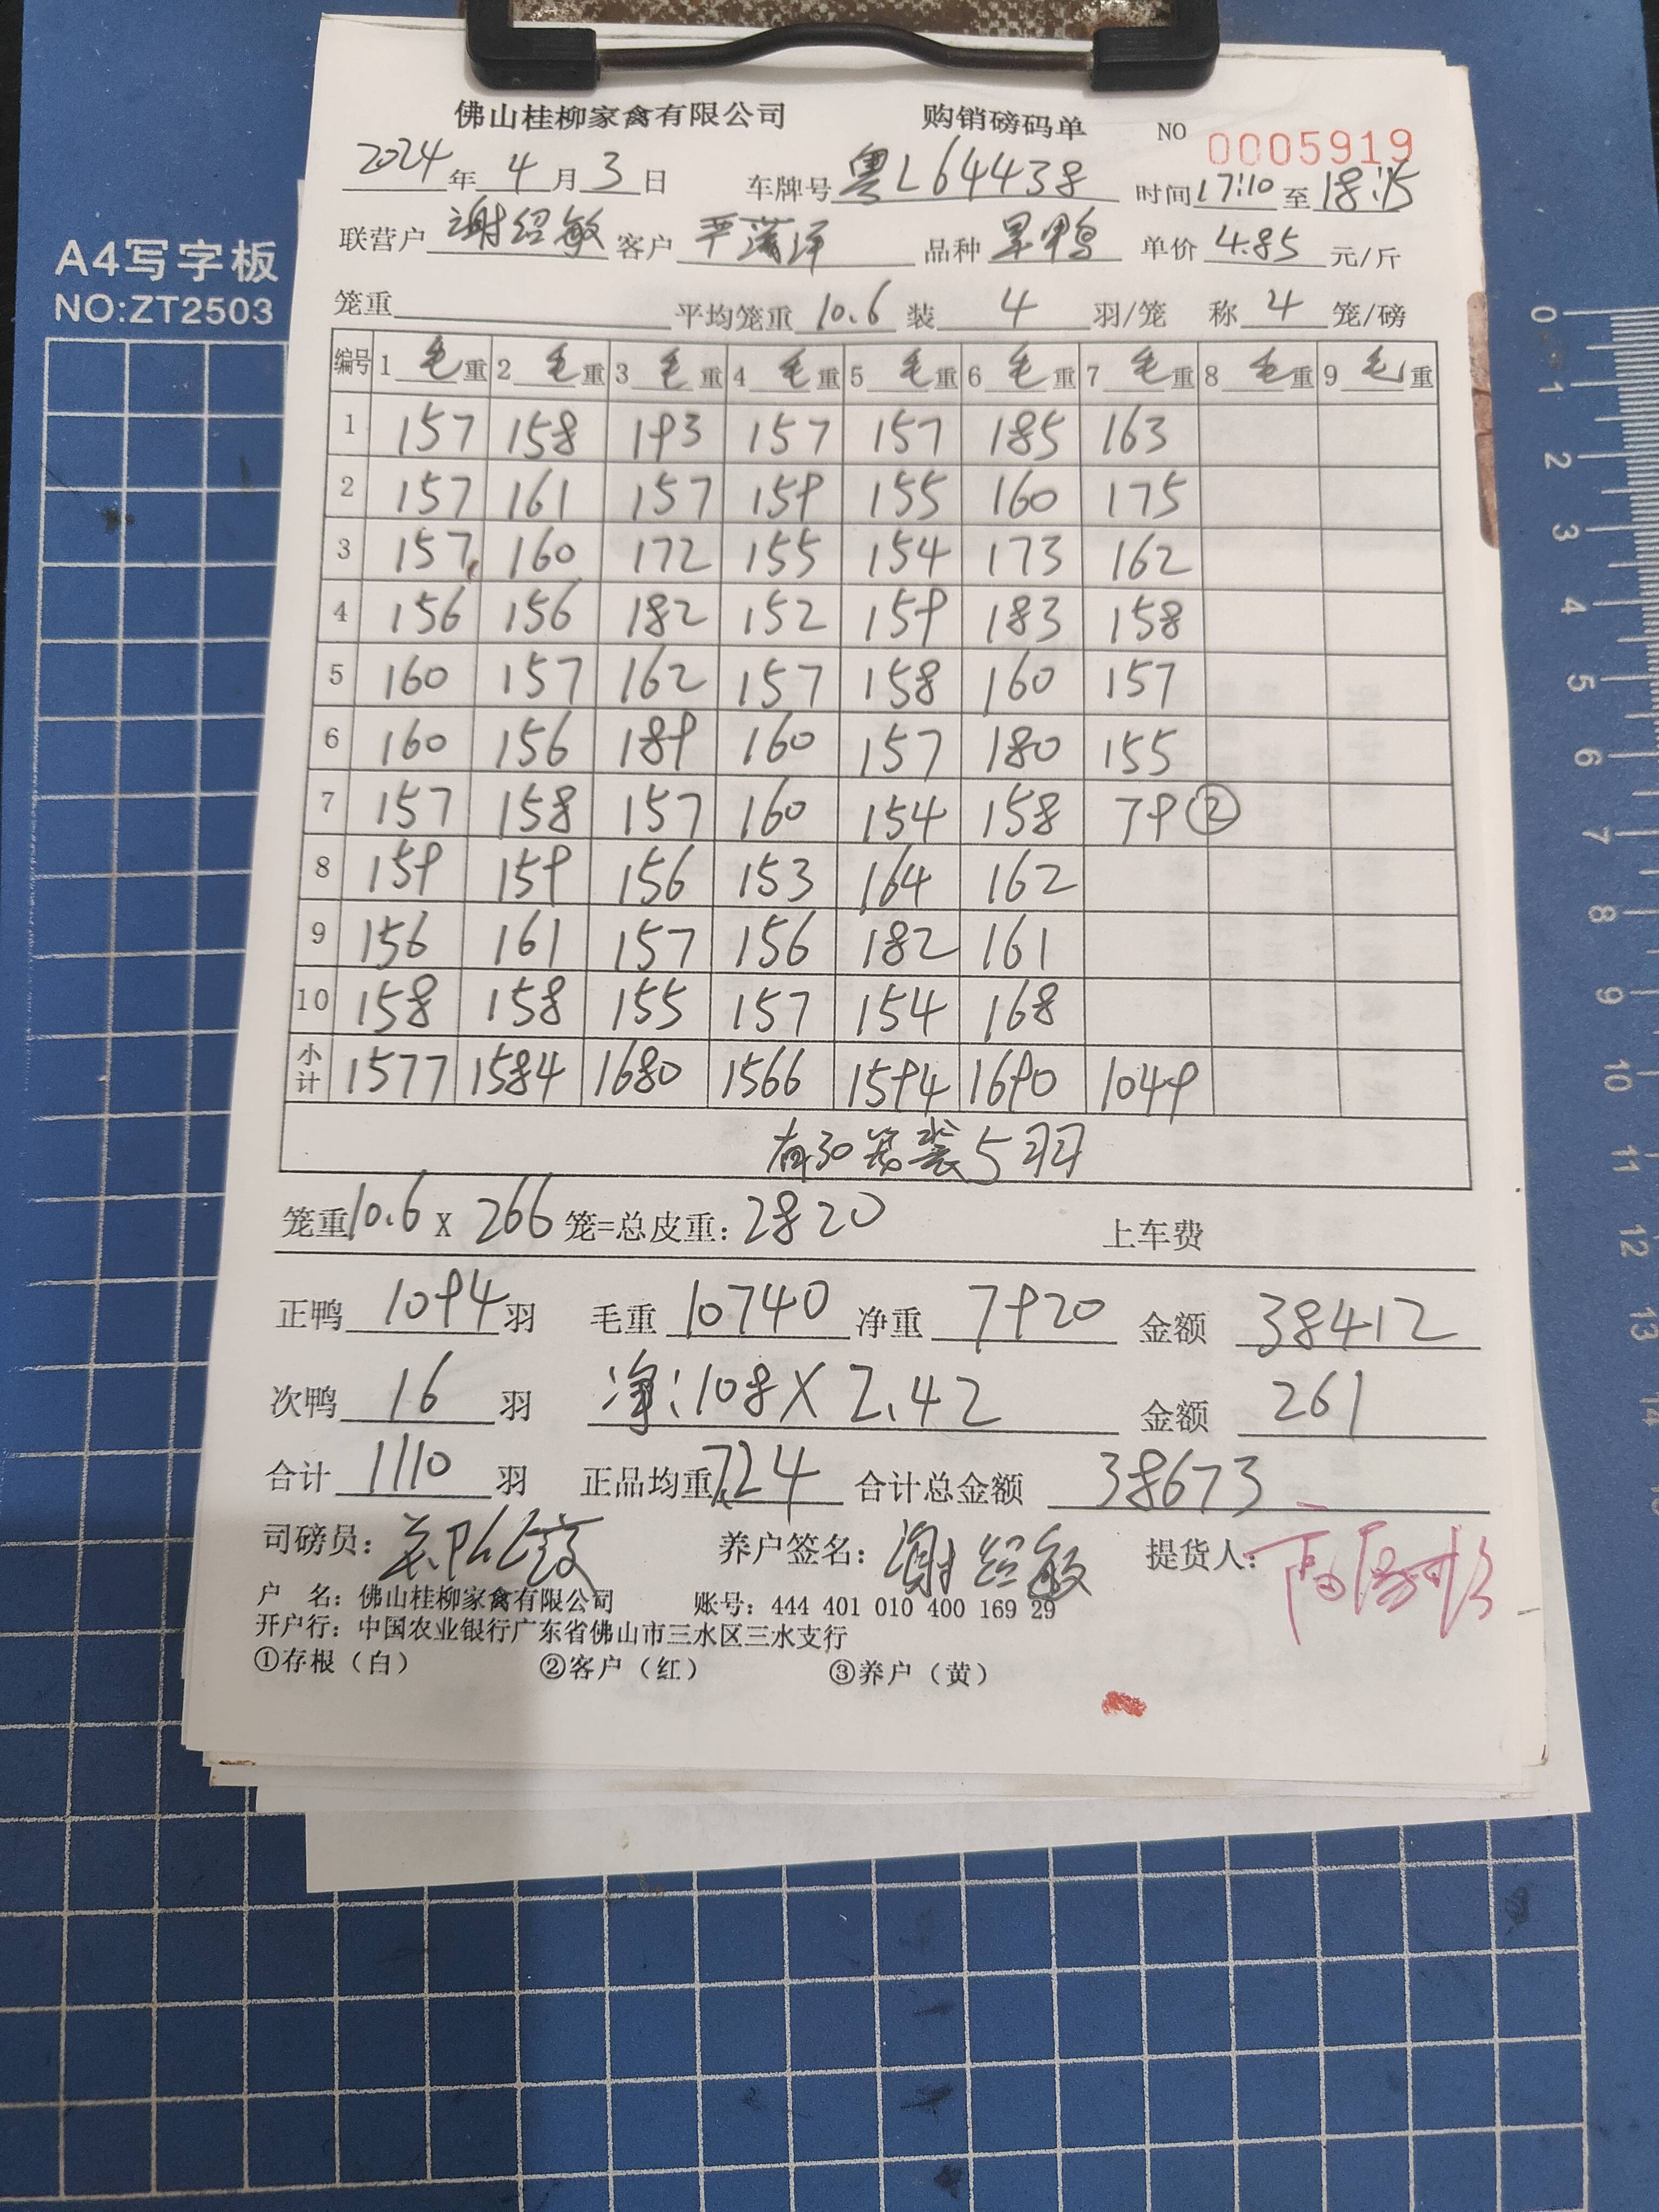 佛山桂柳家禽有限公司 购销磅码单 NO 0005919
2024年4月3日 车牌号粤L64438 时间17:10至18:15
A4写字板
NO:ZT2503
联营户谢绍敏 客户严 品种旱鸭 单价4.85元/斤
笼重 平均笼重10.6装4羽/笼 称4笼/磅
编号 1毛重 2毛重 3毛重 4毛重 5毛重 6毛重 7毛重 8毛重 9毛重
1 157 158 193 157 157 185 163
2 157 161 157 159 155 160 175
3 157 160 172 155 154 173 162
4 156 156 182 152 159 183 158
5 160 157 162 157 158 160 157
6 160 156 189 160 157 180 155
7 157 158 157 160 154 158 79②
8 159 159 156 153 164 162
9 156 161 157 156 182 161
10 158 158 155 157 154 168
小计 1577 1584 1680 1566 1594 1690 1049
有30笼装5羽
笼重10.6x266笼=总皮重:2820 上车费
正鸭1094羽 毛重10740净重7920 金额38412
次鸭16羽 净:108X2.42 金额261
合计1110羽 正品均重7.24合计总金额38673
司磅员: 养户签名:谢绍敏 提货人:
户 名:佛山桂柳家禽有限公司 账号:444 401 010 400 169 29
开户行:中国农业银行广东省佛山市三水区三水支行
①存根(白) ②客户(红) ③养户(黄)
0
1
2
3
4
5
6
7
8
9
10
11
12
13
14